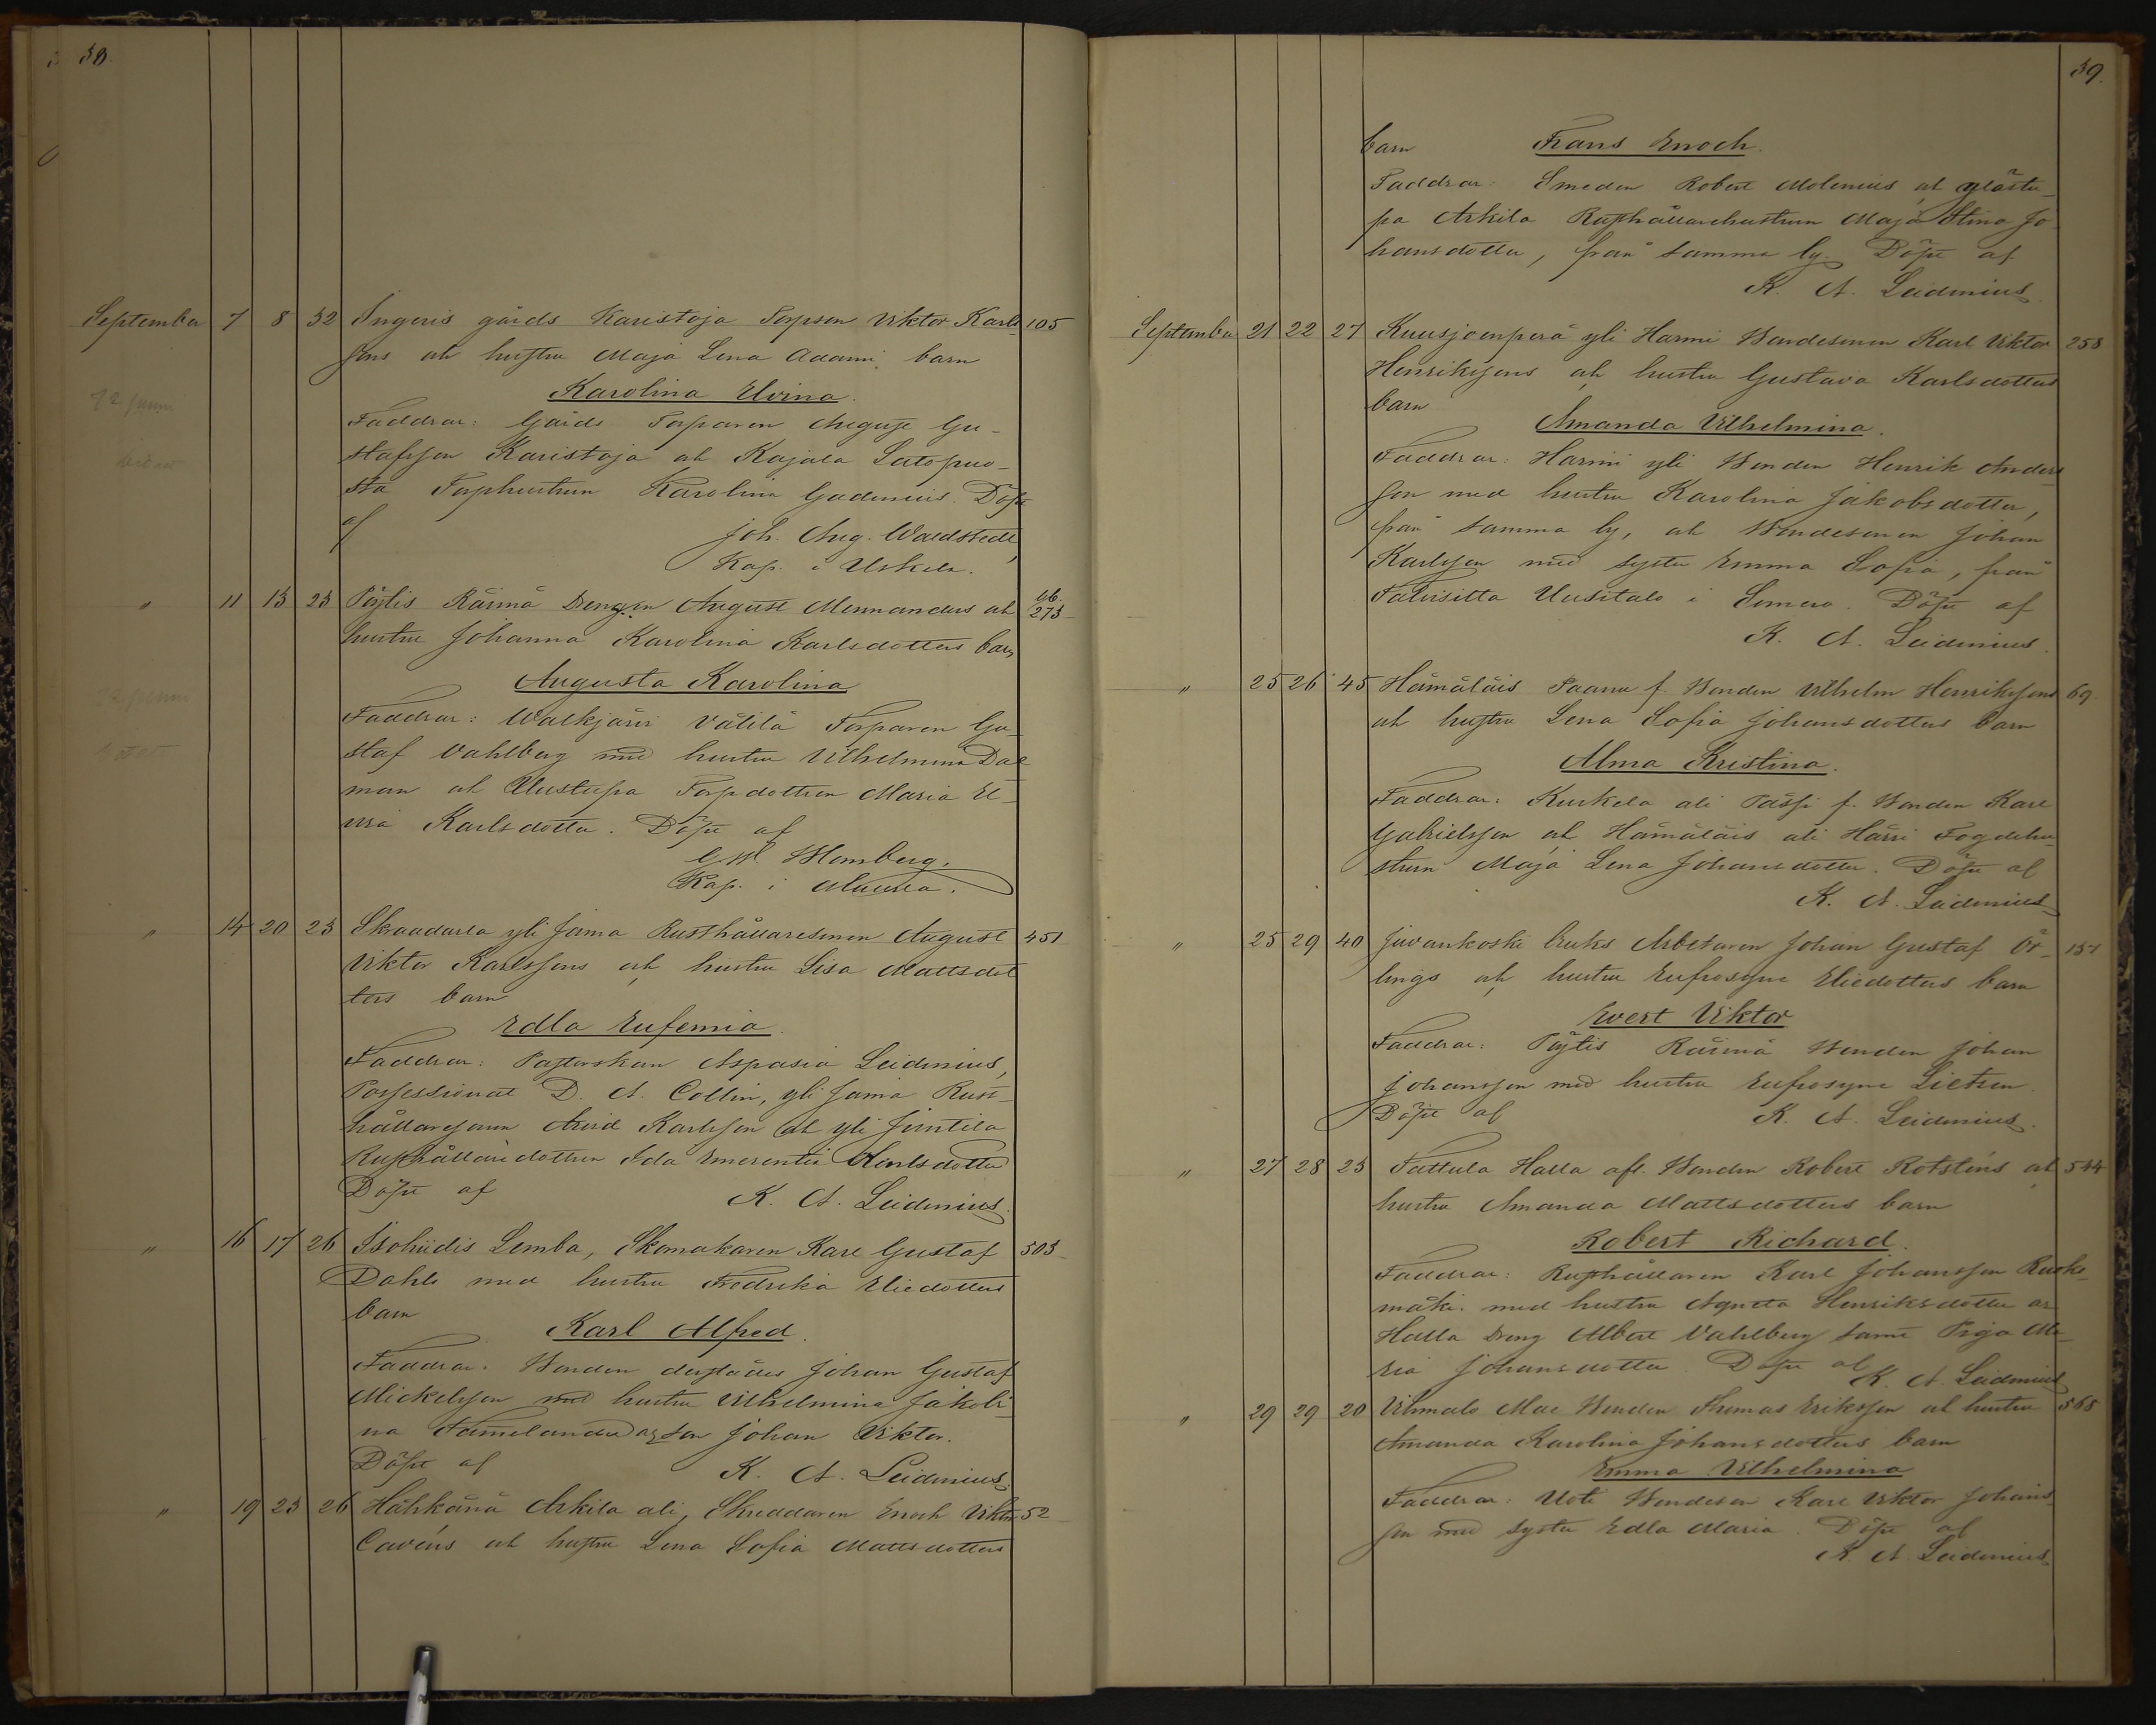 38.
September 7 8 32 Ingeris gårds Karistoja Torpson Viktor Karls 105
sons och hustru Maja Lena Adami barn
Karolina Elvina.
Faddrar: Gårds Torparen August Gu-
stafsson Karistoja och Kajala Latopuo-
sta Torphustrun Karolina Gadenius. Döpt
af Joh. Aug. Waldstedt,
Kap. i Uskela.
" 11 13 23 Pöytis Rännä Drengen August Mennanders och 273
hustru Johanna Karolina Karlsdotters barn
Augusta Karolina
Faddrar: Walkjärvi Välilä Torparen Gu-
staf Vahlberg med hustru Vilhelmina Dal
man och Uustupa Torpdottren Maria El-
vira Karlsdotter. Döpt af
Blomberg.
Kap. i
" 14 20 23 Skraadarla yli Jama Rusthållaresonen August 451
Viktor Karlssons och hustru Lisa Mattsdot
ters barn
Edla Eufemia.
Faddrar: Pastorskan Aspasia Leidenius,
Possessionat D. A. Collin, yli Jama Rust-
hållaresonen Arvid Karlsson och yli Jintila
Rusthållaredottren Ida Emerentia Karlsdotter
Döpt af K. A. Leidenius.
" 16 17 26 Isohiidis Lemba, Skomakaren Karl Gustaf 503
Dahls med hustru Fredrika Eliedotters
barn
Karl Alfred.
Faddrar: Bonden derstädes Johan Gustaf
Mickelsson med hustru Vilhelmina Jakobi-
na Tamelander och son Johan Viktor.
Döpt af K. A. Leidenius.
" 19 23 26 Hähkänä Arkila ali, Skreddaren Enoch Viktor 52
Cavéns och hustru Lena Sofia Mattsdotters
39.
barn Frans Enoch.
Faddrar: Smeden Robert Molenius, och
pa Arkila Rusthållarehustrun Maja Stina Jo-
hansdotter, från samma by. Döpt af
K. A. Leidenius.
September 21 22 27 Kuusjoenperä yli Harmi Bondesonen Karl Viktor 258
Henrikssons och hustru Gustava Karlsdotters
barn
Amanda Vilhelmina.
Faddrar: Harmi yli Bonden Henrik Anders
son med hustru Karolina Jakobsdotter,
från samma by, och Bondesonen Johan
Karlsson med syster Emma Sofia, från
Talvisitta Uusitalo i Somero. Döpt af
K. A. Leidenius.
" 25 26 45 Hämäläis Paanu f. Bonden Vilhelm Henrikssons 69.
och hustru Lena Sofia Johansdotters barn
Alma Kristina.
Faddrar: Kurkela ali Pässi f. Bonden Karl
Gabrielsson och Hämäläis ali Härri Fogdehu-
strun Maja Lena Johansdotter. Döpt af
K. A. Leidenius
" 25 29 40 Juvankoski bruks Arbetaren Johan Gustaf Ör- 157
lings och hustru Eufrosyne Eliedotters barn
Evert Viktor
Faddrar: Pöytis Rännä Bonden Johan
Johansson med hustru Eufrosyne Lietzen.
Döpt af K. A. Leidenius.
" 27 28 23 Tattula Halla afl. Bonden Robert Rotsténs och 544
hustru Amanda Mattsdotters barn
Robert Richard.
Faddrar: Rusthållaren Karl Johansson Ruoks-
mäki med hustru Agneta Henriksdotter
Halla Dreng Albert Vahlberg samt Piga Ma-
ria Johansdotter. Döpt af K. A. Leidenius
" 29 29 20 Vihmalo Bonden Thomas Eriksson och hustru 568
Amanda Karolina Johansdotters barn
Emma Vilhelmina
Faddrar: Uoti Bondeson Karl Viktor Johans-
son med syster Edla Maria. Döpt af
K. A. Leidenius